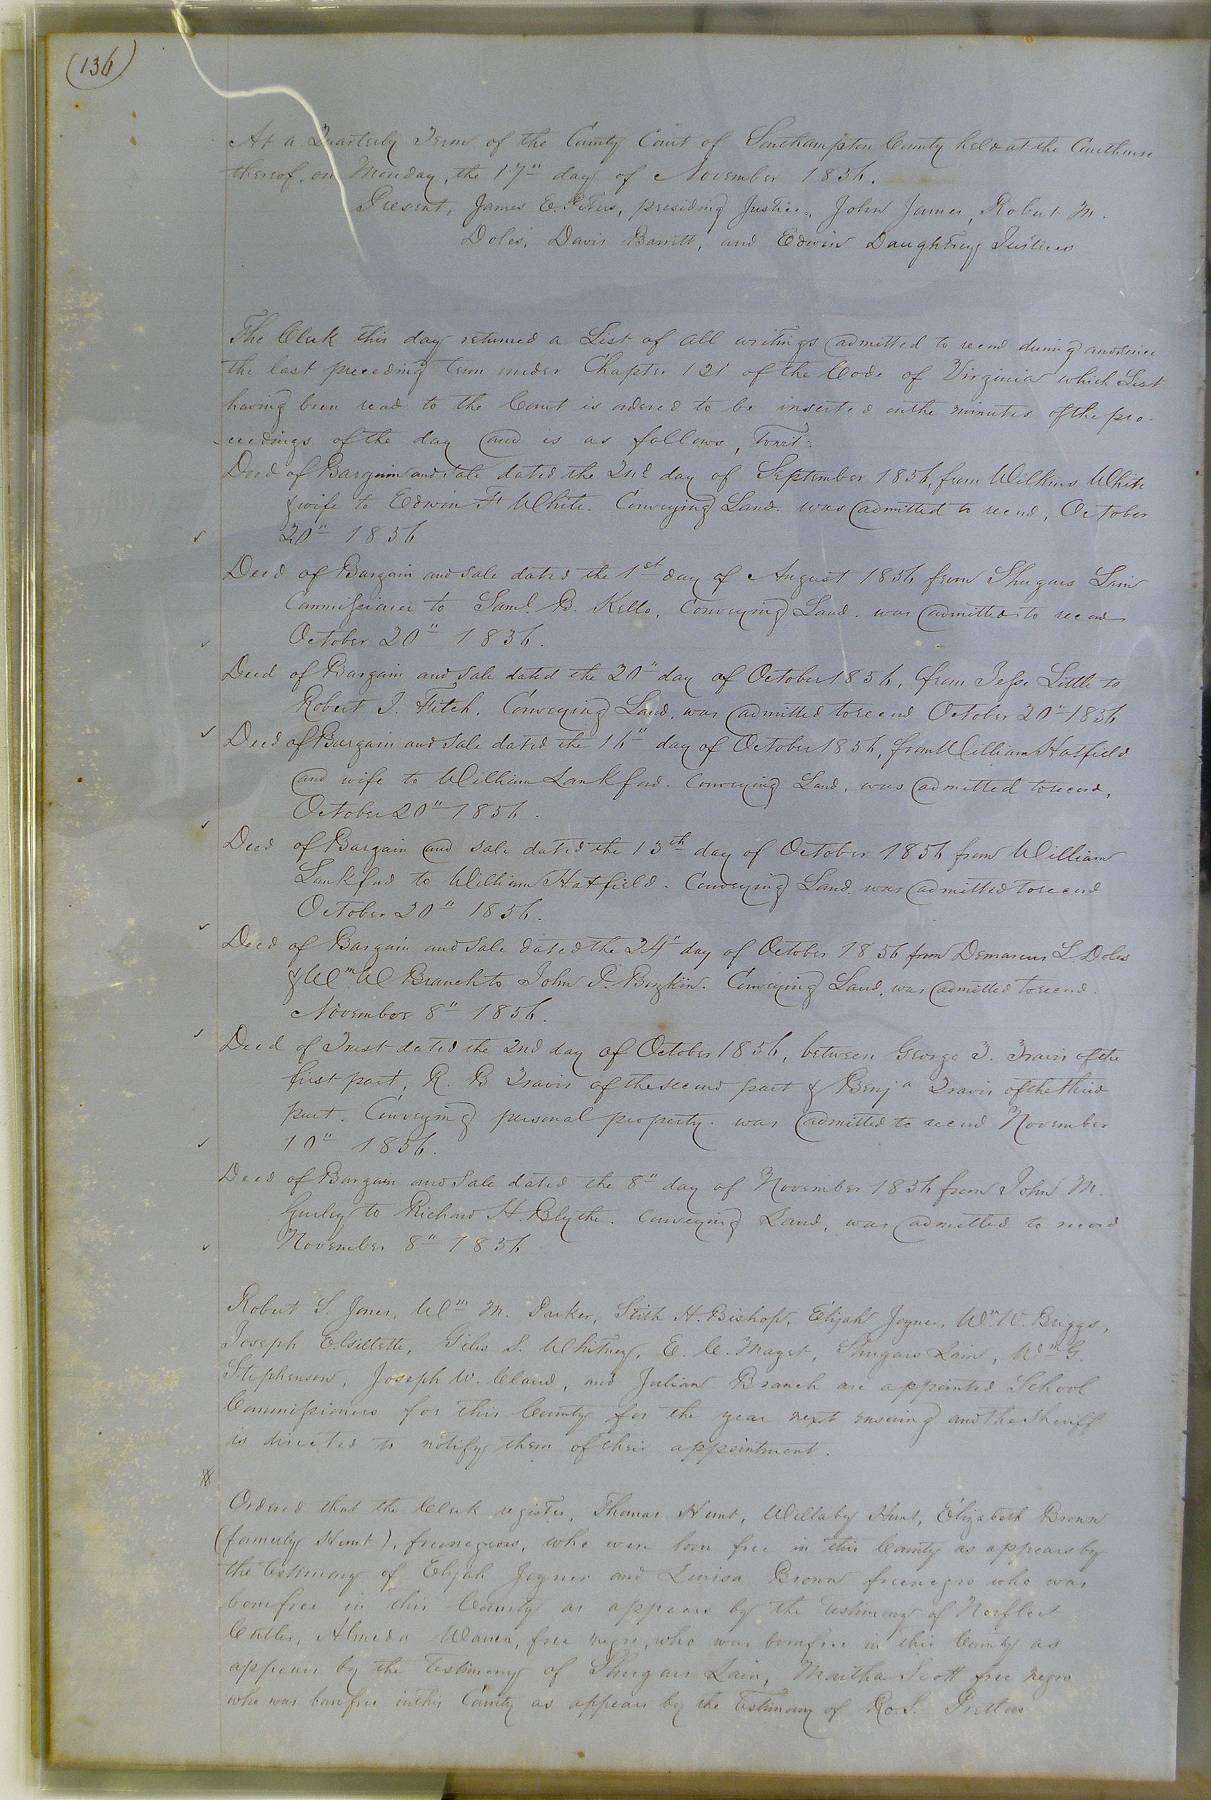 (136)
At a Quarterly Term of the County Court of Southampton County held at the Courthouse
thereof, on Monday, the 17" day of November 1856.
Present, James E. Peters, presiding Justice, John James, Robert M.
Doles, Davis Barrett, and Edwin Daughtrey Justices
The Clerk this day returned a List of all writings admitted to record during and since
the last preceding term under Chapter 121 of the Code of Virginia which List
having been read to the Court is ordered to be inserted on the minutes of the pro-
ceedings of the day and is as follows, Towit:
Deed of Bargain and sale dated the 2nd day of September 1856, from Wilkins White
& wife to Edwin F. White. Conveying Land. was admitted to record, October
20" 1856
Deed of Bargain and sale dated the 1st day of August 1856 from Shugars Lain
Commissioner to Saml. B. Kello, Conveying Land. was admitted to record
October 20" 1856.
Deed of Bargain and sale dated the 20" day of October 1856, from Jesse Little to
Robert J. Fitch. Conveying Land. was admitted to record October 20" 1856
Deed of Bargain and sale dated the 16" day of October 1856, from William Hatfield
and wife to William Lankford. Conveying Land, was admitted to record,
October 20" 1856.
Deed of Bargain and sale dated the 13th day of October 1856 from William
Lankford to William Hatfield. Conveying Land. was admitted to record
October 20" 1856.
Deed of Bargain and sale dated the 24" day of October 1856 from Demarcus L Doles
& Wm W Branch to John P. Bizkin. Conveying Land, was admitted to record.
November 8" 1856.
Deed of Trust dated the 2nd day of October 1856, between George T. Travis of the
first part, R. B Travis of the second part & Benja Travis of the third
part. Conveying personal property. was admitted to record November
10" 1856.
Deed of Bargain and sale dated the 8" day of November 1856 from John M.
Gurley to Richard H. Blythe. Conveying Land, was admitted to record
November 8" 1856
Robert S. Jones, Wm M. Parker, Stith H. Bishop, Elijah Joyner, Wm W. Briggs,
Joseph Elsillette, Giles S. Whitney, E. C. Maget, Shugars Lain, Wm G.
Stephenson, Joseph W. Claud, and Julian Branch are appointed School
Commissioners for this County for the year next ensuing and the Sheriff
is directed to notify them of their appointment.
Ordered that the Clerk register, Thomas Hunt, Willaby Hunt, Elizabeth Brown
(formerly Hunt), free negroes, who were born free in this County as appears by
the testimony of Elijah Joyner and Louisa Brown free negro who was
born free in this County as appears by the testimony of Norfleet
Cutler, Almeda Warren, free negro, who was born free in this County as
appears by the testimony of Shugars Lain, Martha Scott free negro
who was born free in this County as appears by the testimony of Ro. S. Pretlow